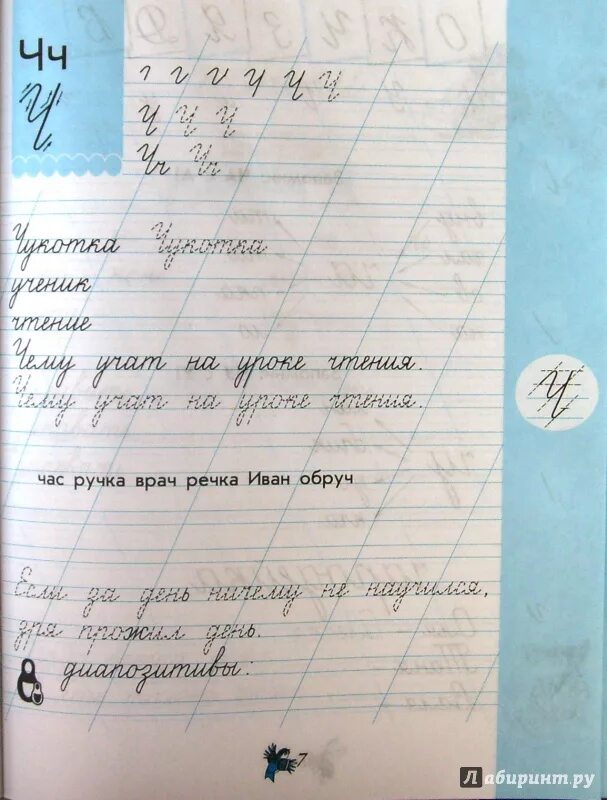 Чч
Ч
Ч Ч Ч
Чч Чч
Чукотка Чукотка
ученик
чтение
Чему учат на уроке чтения.
Чему учат на уроке чтения.
Ч
час ручка врач речка Иван обруч
Если за день ничему не научился,
зря прожил день.
диапозитивы:
7
Лабиринт.ру